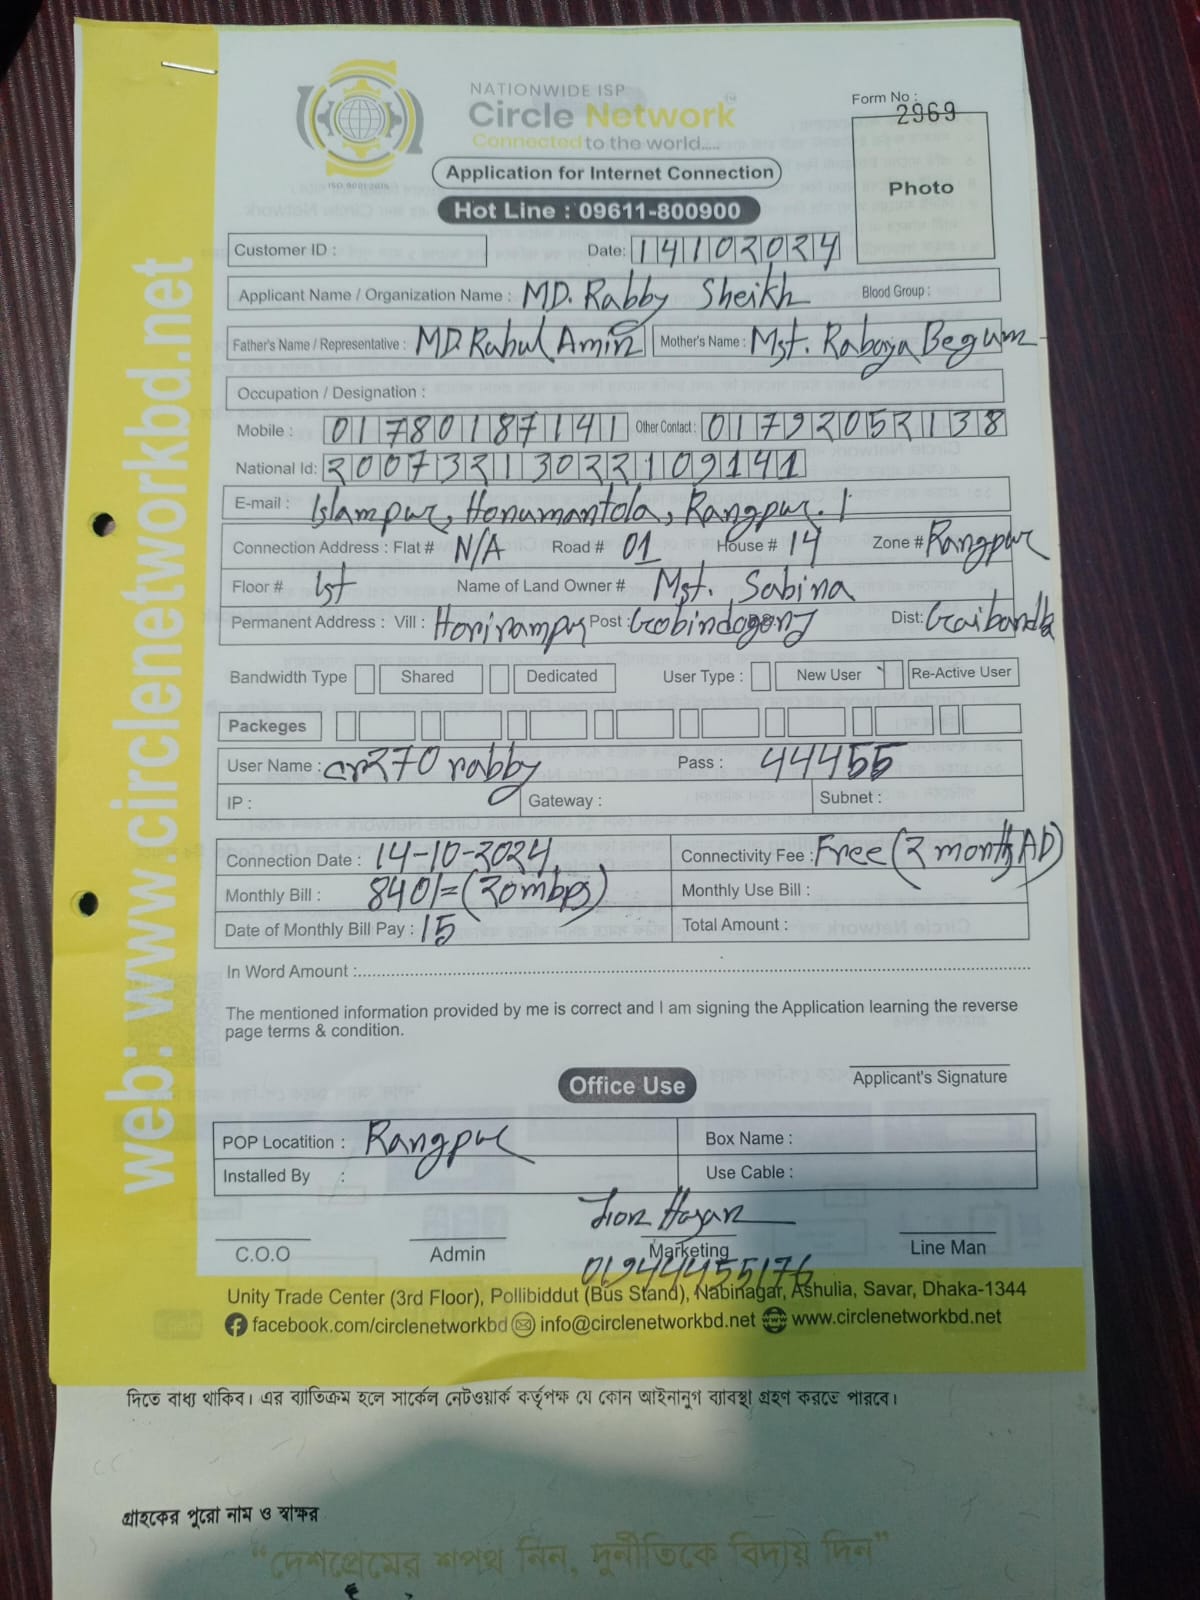 NATIONWIDE ISP
Circle Network™
Connected to the world.....
ISO 9001:2015
Form No : 2969
Photo
Application for Internet Connection
Hot Line : 09611-800900
Customer ID :
Date: 14102024
Applicant Name / Organization Name : MD. Rabby Sheikh
Blood Group :
Father's Name / Representative : MD. Rahul Amin
Mother's Name : Mst. Rabaya Begum
Occupation / Designation :
Mobile : 01780187141 Other Contact : 01792052138
National Id: 20073213022109141
E-mail : Islampur, Honumantola, Rangpur.
Connection Address : Flat # N/A Road # 01 House # 14 Zone # Rangpur
Floor # 1st Name of Land Owner # Mst. Sabina
Permanent Address : Vill : Horirampur Post : Gobindogonj Dist: Gaibandha
Bandwidth Type Shared Dedicated User Type : New User Re-Active User
Packeges
User Name : cn270rabby Pass : 44455
IP : Gateway : Subnet :
Connection Date : 14-10-2024 Connectivity Fee : Free (2 month AD)
Monthly Bill : 840/= (20mbps) Monthly Use Bill :
Date of Monthly Bill Pay : 15 Total Amount :
In Word Amount :
The mentioned information provided by me is correct and I am signing the Application learning the reverse
page terms & condition.
Applicant's Signature
Office Use
POP Locatition : Rangpur Box Name :
Installed By : Use Cable :
Hasan
C.O.O Admin Marketing Line Man
01944455176
Unity Trade Center (3rd Floor), Pollibiddut (Bus Stand), Nabinagar, Ashulia, Savar, Dhaka-1344
facebook.com/circlenetworkbd info@circlenetworkbd.net www.circlenetworkbd.net
web: www.circlenetworkbd.net
দিতে বাধ্য থাকিব। এর ব্যতিক্রম হলে সার্কেল নেটওয়ার্ক কর্তৃপক্ষ যে কোন আইনানুগ ব্যাবস্থা গ্রহণ করতে পারবে।
গ্রাহকের পুরো নাম ও স্বাক্ষর
“দেশপ্রেমের শপথ নিন, দুর্নীতিকে বিদায় দিন”